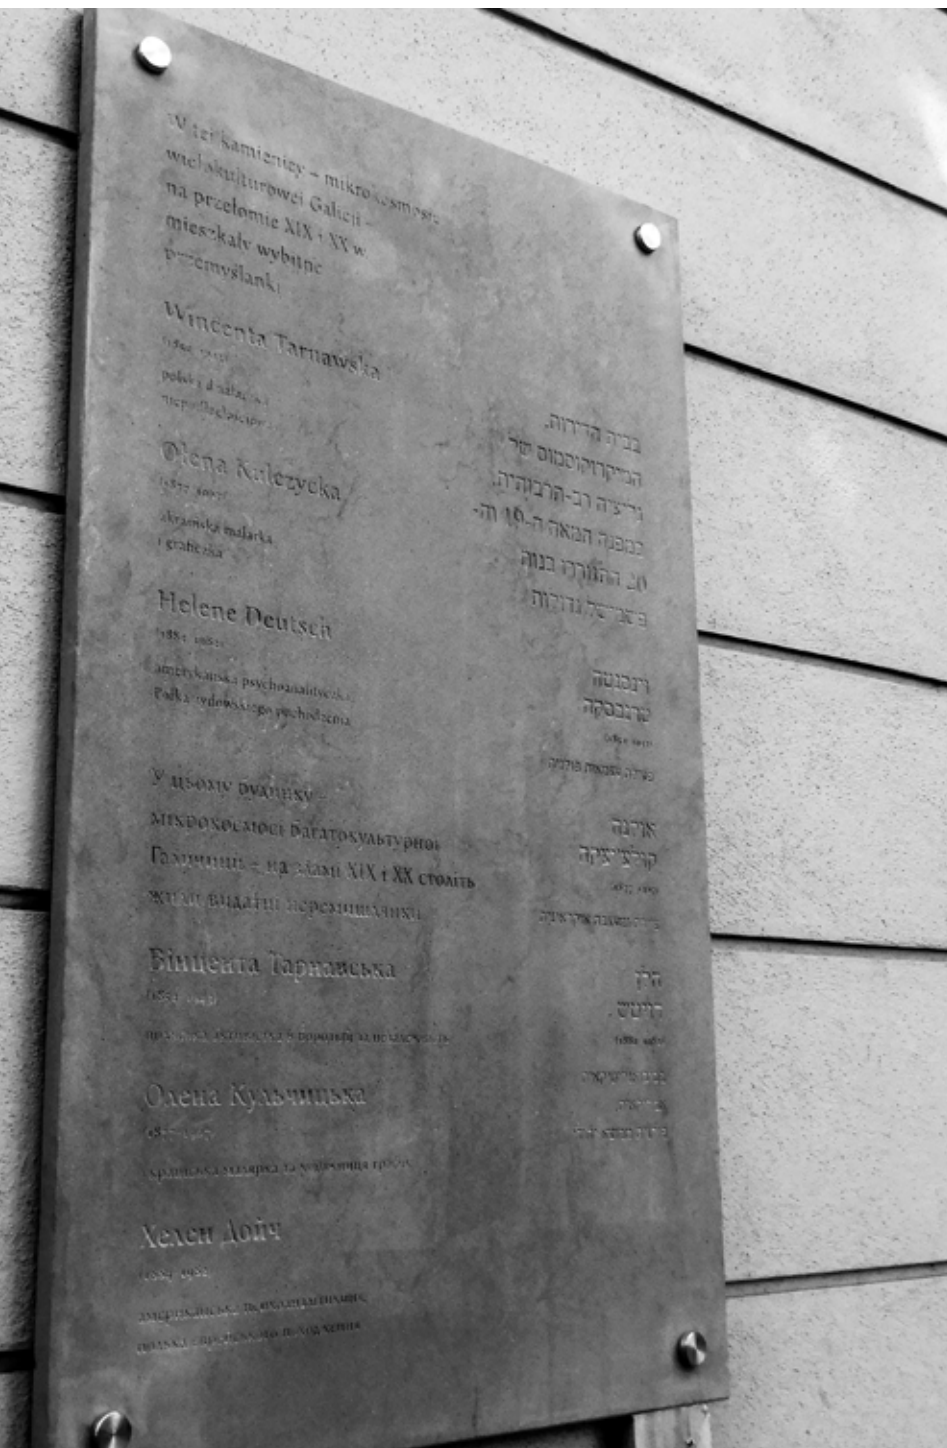 W tej kamienicy – mikrokosmosie
wielokulturowej Galicji –
na przełomie XIX i XX w
mieszkały wybitne
przemyślanki
Wincenta Tarnawska
polska działaczka
niepodległościowa
Olena Kulczycka
(1877-1967)
ukraińska malarka
i graficzka
Helene Deutsch
(1884-1982)
amerykańska psychoanalityczka
Polka żydowskiego pochodzenia
У цьому будинку –
мікрокосмосі багатокультурної
Галичини – на зламі XIX і XX століть
жили видатні перемишлянки
Вінцента Тарнавська
Олена Кульчицька
українська малярка та
Хелен Дойч
(1884-1982)
американська
полька єврейського походження
בבית הדירות,
המיקרוקוסמוס של
גליציה רב-תרבותית,
במפנה המאה ה-19 וה-
20 התגוררו בנות
פשמישל גדולות
וינסנטה
טרנבסקה
פעילה עצמאות פולניה
אולנה
קולצ'יצקה
אוקראינית
הלן
דויטש